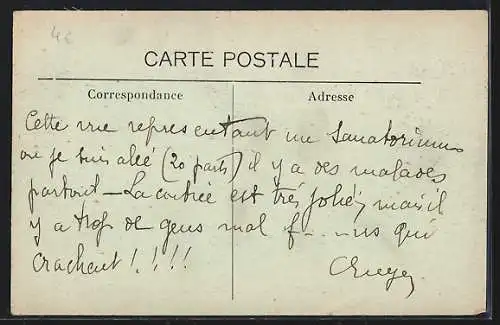 4€
CARTE POSTALE
Correspondance
Adresse
Cette vue représentant un Sanatorium
où je suis allé (20 parts) il y a des malades
partout — La contrée est très jolie, mais il
y a trop de gens mal f....us qui
crachent ! ! ! !